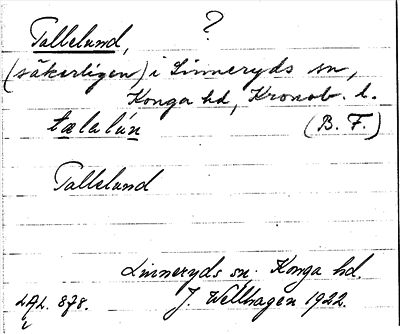 ?
Tallelund,
(säkerligen) i Linneryds sn,
Konga hd, Kronob. l.
tælalún (B. F.)
Tallelund
Linneryds sn. Konga hd.
LAL. 878. J. Wellhagen 1922.